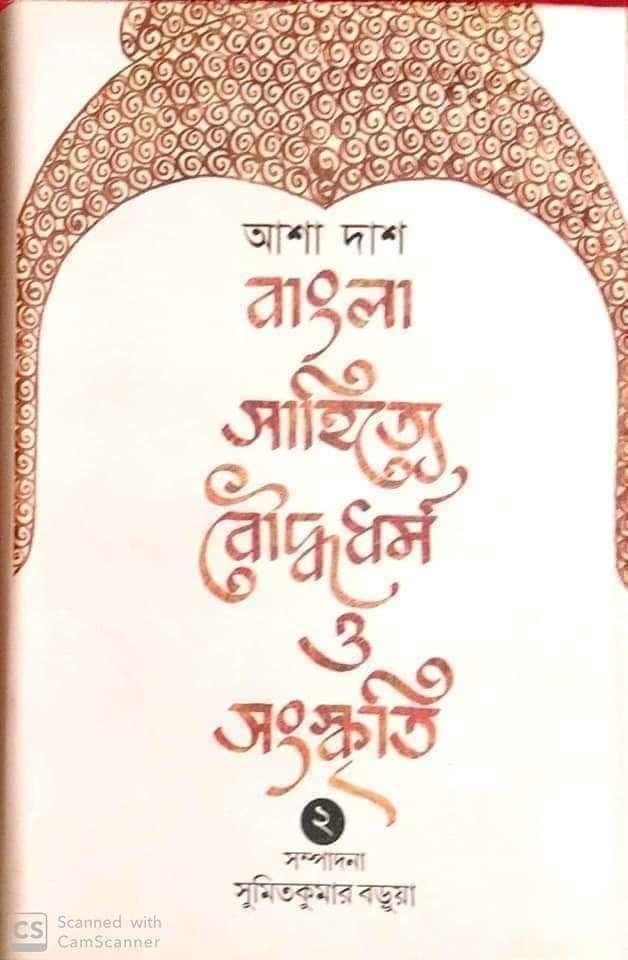 আশা দাশ
বাংলা
সাহিত্যে
বৌদ্ধধর্ম
ও
সংস্কৃতি
২
সম্পাদনা
সুমিতকুমার বড়ুয়া
CS Scanned with
CamScanner